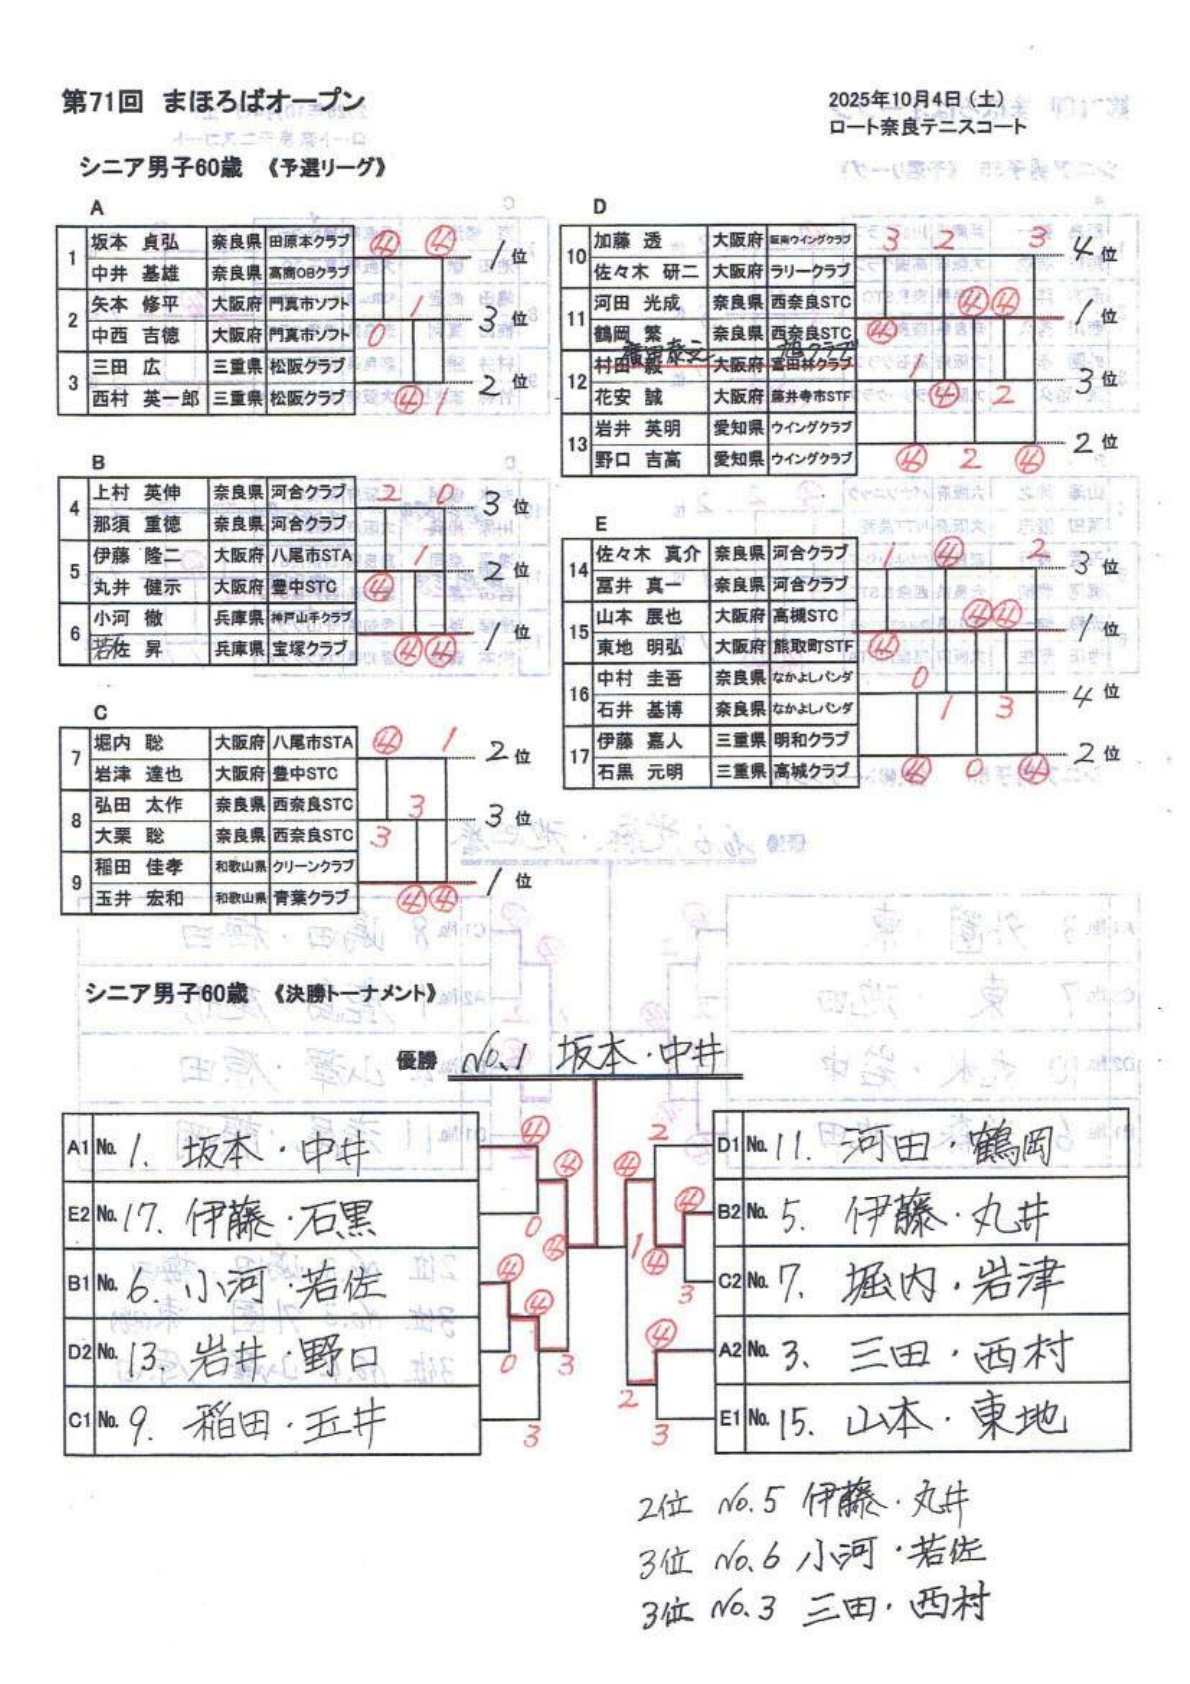 第71回 まほろばオープン
2025年10月4日（土）
ロート奈良テニスコート
シニア男子60歳 《予選リーグ》
A
1 坂本 貞弘 奈良県 田原本クラブ ④ ④ 1位
中井 基雄 奈良県 高商OBクラブ
2 矢本 修平 大阪府 門真市ソフト 0 1 3位
中西 吉徳 大阪府 門真市ソフト
3 三田 広 三重県 松阪クラブ ④ 1 2位
西村 英一郎 三重県 松阪クラブ
B
4 上村 英伸 奈良県 河合クラブ 2 0 3位
那須 重徳 奈良県 河合クラブ
5 伊藤 隆二 大阪府 八尾市STA ④ 1 2位
丸井 健示 大阪府 豊中STC
6 小河 徹 兵庫県 神戸山手クラブ ④ ④ 1位
若佐 昇 兵庫県 宝塚クラブ
C
7 堀内 聡 大阪府 八尾市STA ④ 1 2位
岩津 達也 大阪府 豊中STC
8 弘田 太作 奈良県 西奈良STC 3 3 3位
大栗 聡 奈良県 西奈良STC
9 稲田 佳孝 和歌山県 クリーンクラブ ④ ④ 1位
玉井 宏和 和歌山県 青葉クラブ
D
10 加藤 透 大阪府 阪南ウイングクラブ 3 2 3 4位
佐々木 研二 大阪府 ラリークラブ
11 河田 光成 奈良県 西奈良STC ④ ④ ④ 1位
鶴岡 繁 奈良県 西奈良STC
12 村田 毅 大阪府 富田林クラブ ④ 1 2 3位
花安 誠 大阪府 藤井寺市STF
13 岩井 英明 愛知県 ウイングクラブ ④ 2 ④ 2位
野口 吉高 愛知県 ウイングクラブ
E
14 佐々木 真介 奈良県 河合クラブ 1 ④ 2 3位
冨井 真一 奈良県 河合クラブ
15 山本 展也 大阪府 高槻STC ④ ④ ④ 1位
東地 明弘 大阪府 熊取町STF
16 中村 圭吾 奈良県 なかよしパンダ 0 1 3 4位
石井 基博 奈良県 なかよしパンダ
17 伊藤 嘉人 三重県 明和クラブ ④ 0 ④ 2位
石黒 元明 三重県 高城クラブ
シニア男子60歳 《決勝トーナメント》
優勝 No.1 坂本・中井
A1 No. 1. 坂本・中井 ④ ④
E2 No. 17. 伊藤・石黒 0 ④
B1 No. 6. 小河・若佐 ④ ④
D2 No. 13. 岩井・野口 0 3
C1 No. 9. 稲田・玉井 3
2 D1 No. 11. 河田・鶴岡
④ ④ B2 No. 5. 伊藤・丸井
1 ④ 3 C2 No. 7. 堀内・岩津
④ A2 No. 3. 三田・西村
2 3 E1 No. 15. 山本・東地
2位 No.5 伊藤・丸井
3位 No.6 小河・若佐
3位 No.3 三田・西村